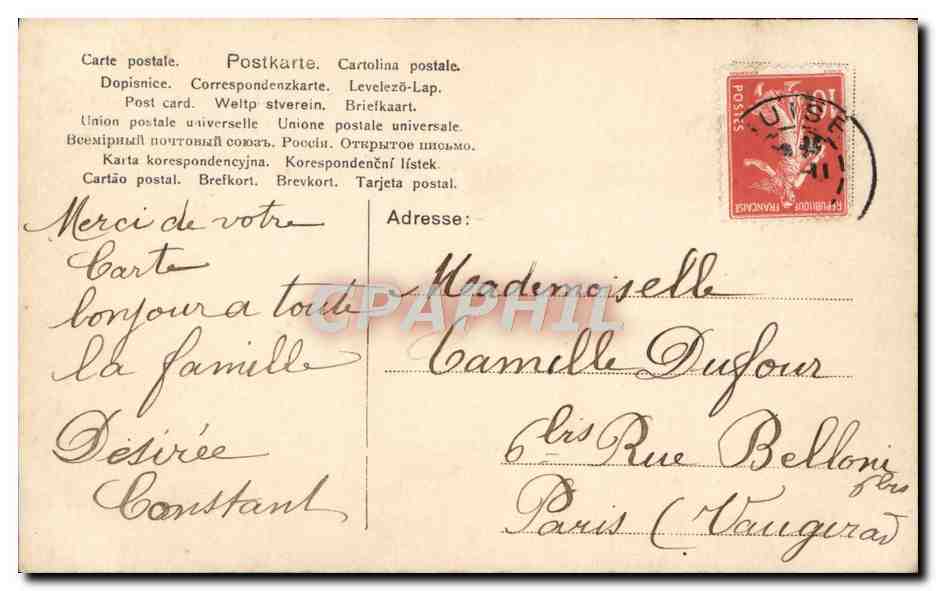 Carte postale. Postkarte. Cartolina postale.
Dopisnice. Correspondenzkarte. Levelező-Lap.
Post card. Weltp stverein. Briefkaart.
Union postale universelle Unione postale universale.
Всемірный почтовый союзъ. Россія. Открытое письмо.
Karta korespondencyjna. Korespondenční lístek.
Cartão postal. Brefkort. Brevkort. Tarjeta postal.
10
POSTES
REPUBLIQUE FRANÇAISE
UISE
11
Merci de votre
Carte
bonjour a toute
la famille
Désirée
Constant
Adresse:
Mademoiselle
Camille Dufour
6 bis Rue Belloni
6 bis
Paris (Vaugirard
CPAPHIL